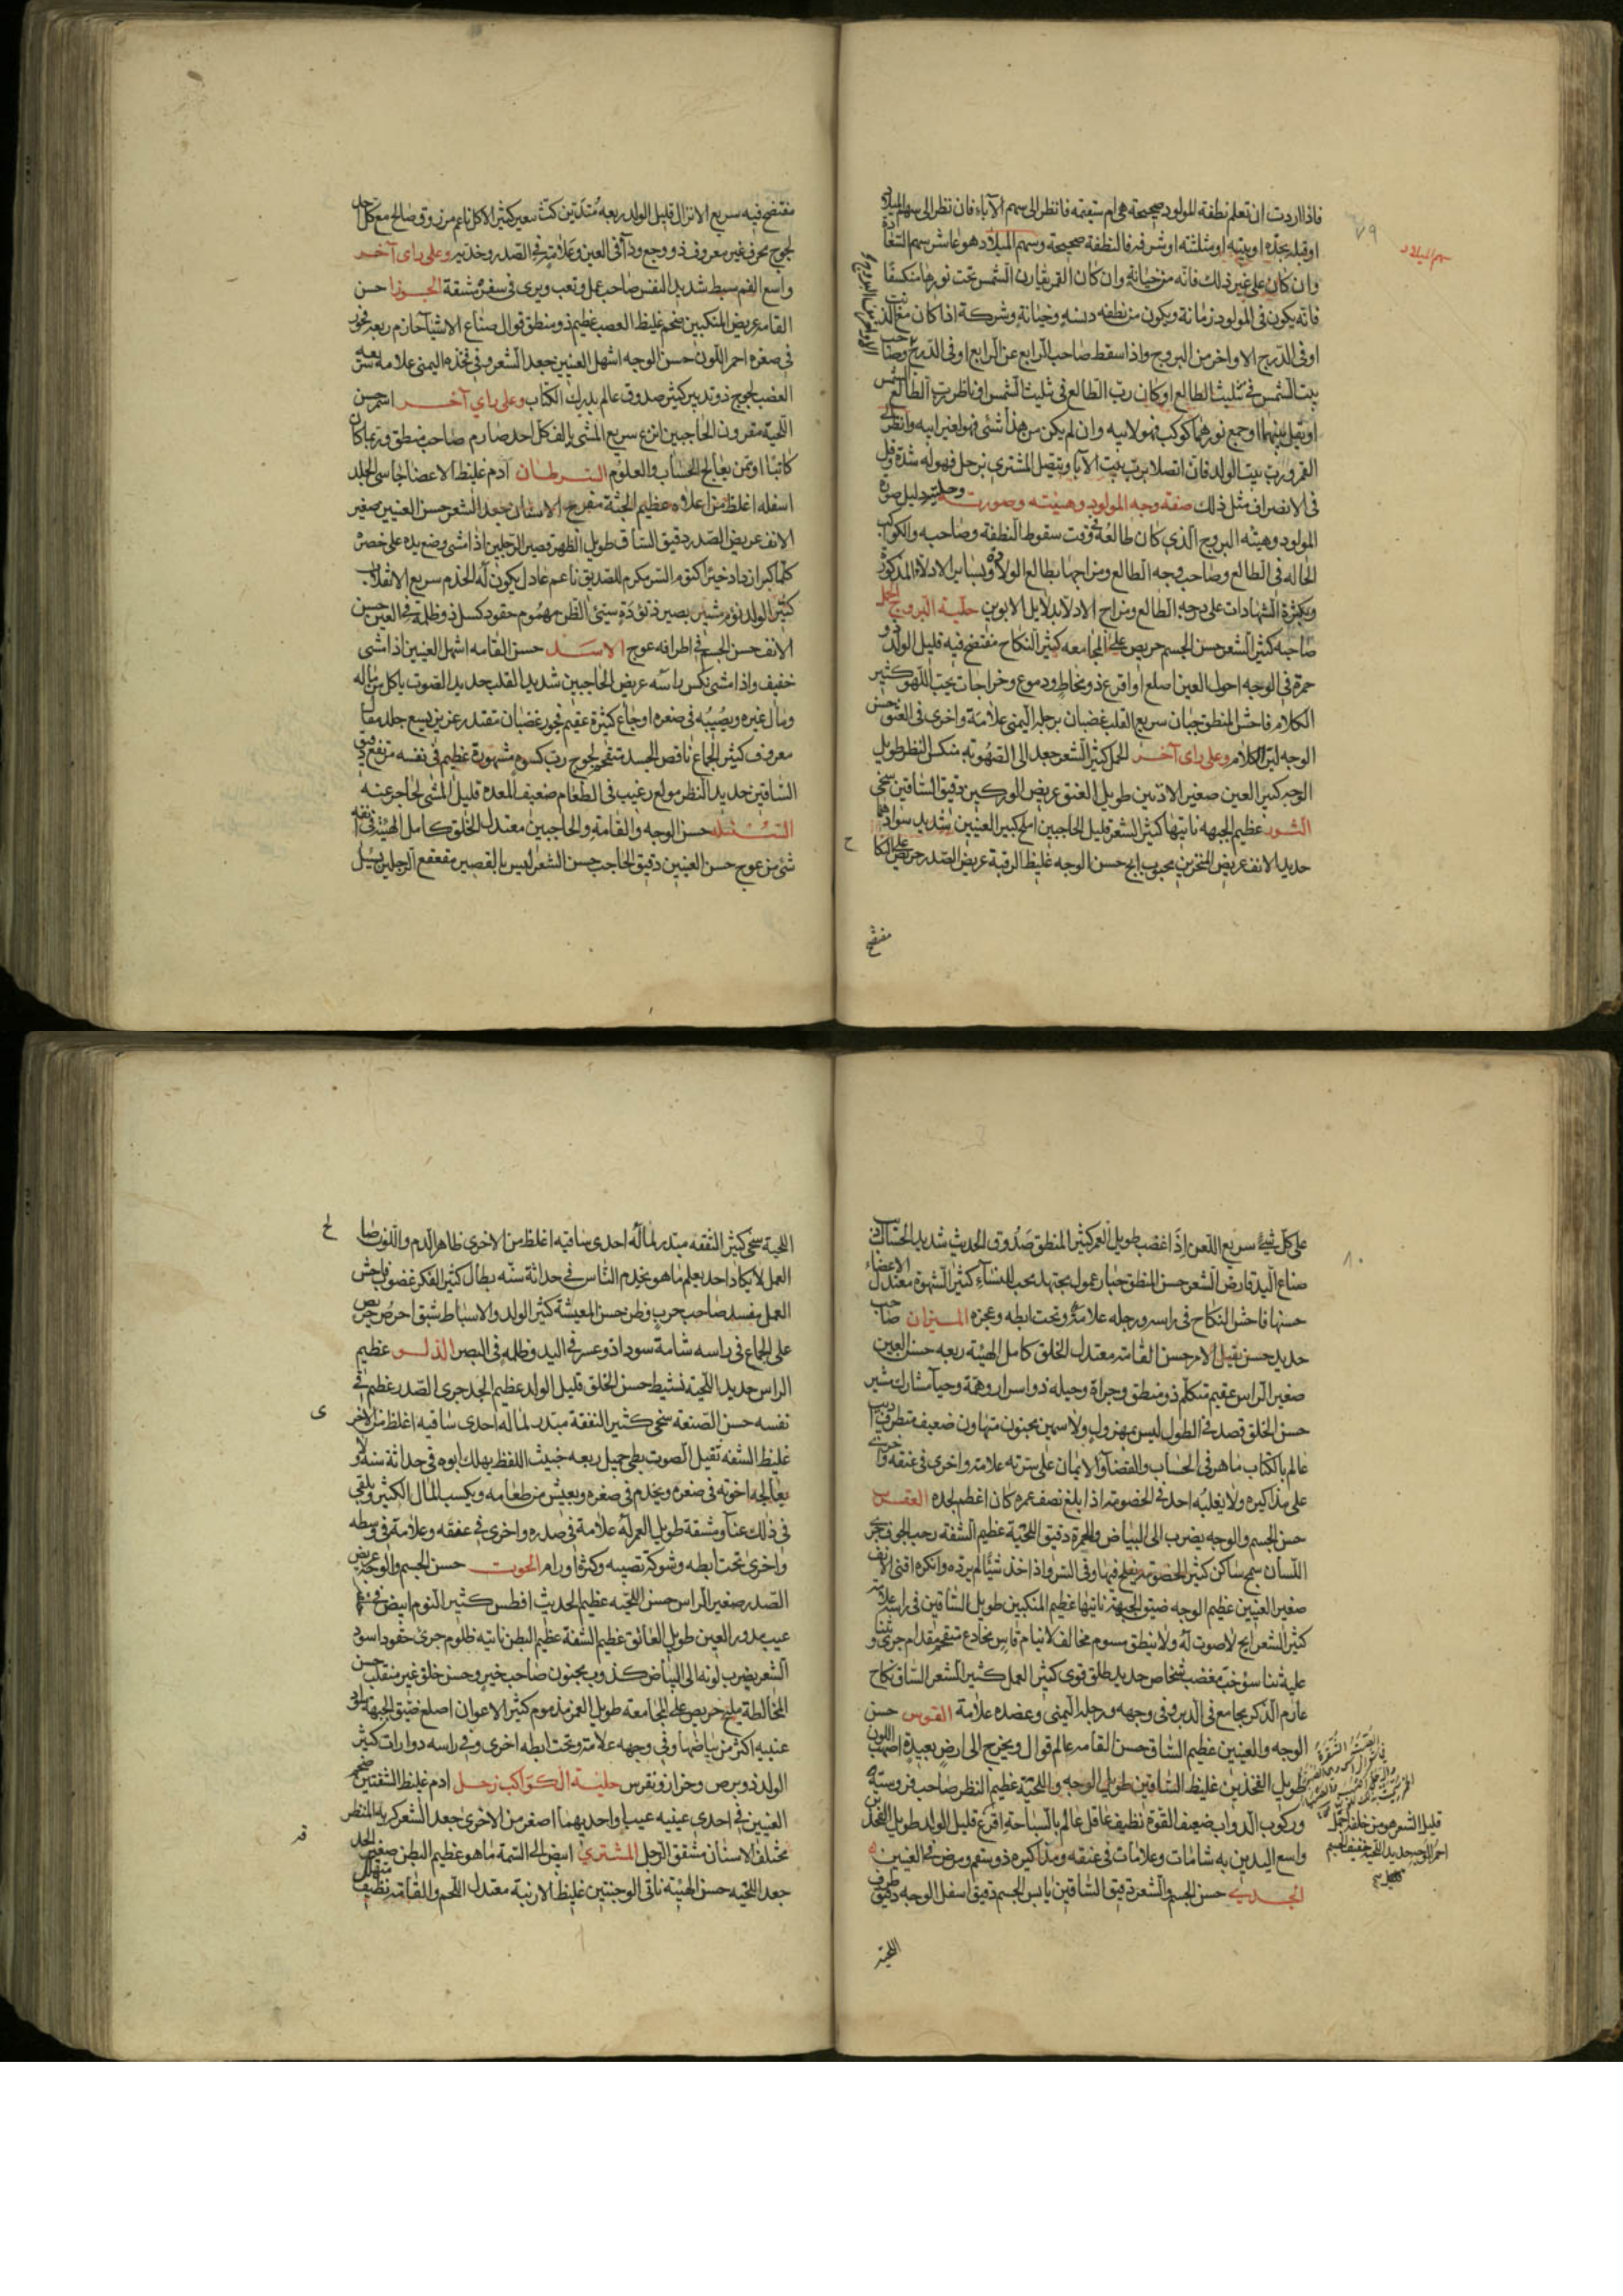 ٧٩
سهم الميلاد
فاذا اردت ان تعلم نطفة المولود صحيحة هى ام سقيمة فانظر الى سهم الآباء فان نظر الى سهم الميلاد
او قبله بحده او بيته او مثلثته او شرفه فالنطفة صحيحة وسهم الميلاد هو عاشر سهم السعادة
وان كان على غير ذلك فانه من خيانة وان كان القمر يقارن الشمس تحت نورها منكسفا
فانه يكون فى المولود زمانة ويكون من نطفه دنسه وخيانة وشركة اذا كان مع الذنب
او فى الدرج الاواخر من البروج واذا سقط صاحب الرابع عن الرابع او فى الدرج وصاحب
بيت الشمس فى تثليث الطالع او كان رب الطالع فى تثليث الشمس او ناظر رب الطالع الشمس
او يقبل بينهما او جمع نورهما كوكب فهو لابيه وان لم يكن من هذا شئ فهو لغير ابيه وانظر الى
القمر ورب بيت الولد فان اتصلا برب بيت الآباء ويتصل المشترى بزحل فهو له شدة وقل
فى الانصراف مثل ذلك صفة وجه المولود وهيئته وصورته وحليته دليل صورة
المولود وهيئته البروج الذى كان طالعه وقت سقوط النطفة وصاحبه والكوكب
الحاله فى الطالع وصاحب وجه الطالع ومزاجها بطالع الولادة وبساير الادلاء المذكورة
وبكثرة الشهادات على درجه الطالع ومزاج الادلاء بدلايل الابوين حلية البروج الحمل
صاحبه كثير الشعر حسن الجسم حريص على المجامعه كثير النكاح مفتضح فيه قليل الولد ذو
حمرة فى الوجه احول العين اصلع او اقرع ذو مخاط ودموع وخراجات يحب اللهو كثير
الكلام فاحش المنطق جبان سريع القلب غضبان برجله اليمنى علامة واخرى فى العنق حسن
الوجه لين الكلام وعلى راى آخر الحمل كثير الشعر جعد الى الصهوبة منكس النظر طويل
الوجه كبير العين صغير الاذنين طويل العنق عريض الوركين دقيق الساقين سخى
الثور عظيم الجبهه ناتيها كثير الشعر قليل الحاجبين املح كبير العينين شديد سوادهما
حديد الانف عريض المنخرين محبوب ابح حسن الوجه غليظ الرقبة عريض الصدر حريص على النكاح
مفتضح
مفتضح فيه سريع الانزال قليل الولد ربعه متدين كث شعير كثير الاكل ناعم مرزوق صالح مع كل احد
لجوج محروف غير معروف ذو وجع وداء فى العين وعلامة فى الصدر وخديه وعلى راى آخر
واسع الفم سبط شديد النفس صاحب عمل وتعب ويرى فى سفره مشقة الجوزا حسن
القامه عريض المنكبين ضخم غليظ العصب عظيم ذو منطق قوال صناع الاشيا حازم ربعه
فى صغره احمر اللون حسن الوجه اشهل العينين جعد الشعر وفى فخذه اليمنى علامه
الغضب لجوج ذو تدبير كثير صدوق عالم يدرك الكتاب وعلى راى آخر اسمر حسن
اللحية مقرون الحاجبين انزع سريع المشى يالف كل احد صارم صاحب منطق وربما كان
كاتبا او ممن يعالج الحساب والعلوم السرطان ادم غليظ الاعضا جاسى الجلد
اسفله اغلظ من اعلاه عظيم الجثة مفرج الاسنان جعد الشعر حسن العينين صغير
الانف عريض الصدر دقيق الساق طويل الظهر قصير الرجلين اذا مشى وضع يده على خصره
كلما كبر ازداد خيرا كتوم السر مكرم للصديق ناعم عادل يكون له الخدم سريع الانقلاب
كثير الولد نؤم مشير بصير ذو تؤدة سيئ الظن مهموم حقود كسل ذو ظلمة فى العين حسن
الانف حسن الجسم فى اطرافه عوج الاسد حسن القامه اشهل العينين اذا مشى
خفيف واذا مشى نكس راسه عريض الحاجبين شديد القلب حديد الصوت ياكل من ماله
ومال غيره ويصيبه فى صغره اوجاع كثيرة عقيم فجور غضبان مقتدر عزيز يبيع جلد
معروف كثير الجماع ناقص الجسد متقحم لجوج رب كسوه مشهورة عظيم فى نفسه مرتفع دقيق
الساقين حديد النظر مولع رغيب فى الطعام ضعيف المعده قليل المشى لحاجز عنه
السنبله حسن الوجه والقامة والحاجبين معتدل الخلق كامل الهيئة فى
شئ من عوج حسن العينين دقيق الحاجب حسن الشعر ليس بالقصير مقعقع الرجلين
٨٠
على كل شئ سريع اللعن اذا غضب طويل العمر كثير المنطق صدوق الحديث شديد الحساب
صناع اليد قارض الشعر حسن المنطق جبار عمول مجتهد يحب النساء كثير الشهوة معتدل الاعضاء
حسنها فاحش النكاح فى راسه ورجله علامة وتحت ابطه وعجزه الميزان صاحب
حديد حسن يقبل الامر حسن القامة معتدل الخلق كامل الهيئة ربعه حسن العين
صغير الراس عقيم متكلم ذو منطق وجراة وحيله ذو اسرار وهمة وحيا مشارك مشير
حسن الخلق قصد فى الطول ليس بمهزول ولا سمين مجنون متهاون ضعيف متطرف اديب
عالم بالكتاب ماهر فى الحساب والقضا والايمان على سرته علامة واخرى فى عنقه واخرى
على مذاكيره ولا يغلبه احد فى الخصومة اذا بلغ نصف عمره كان اعظم لجده العقرب
حسن الجسم والوجه يضرب الى البياض والحمرة دقيق اللحية عظيم الشفة رحب الجوف جرى
اللسان سمج ساكن كثير الخصومة يفلج فيها وفى الشر واذا اخذ شيئا لم يرده وانكره اقنى الانف
صغير العينين عظيم الوجه ضيق الجبهة ناتيها عظيم المنكبين طويل الساقين فى راسه علامة
كثير الشعر ابح لاصوت له ولا ينطق مخالف لا ينام قاس مخادع متقحم مقدام جرى
عليه ثنا سوء خب مغضب شخاص حديد طلق قوى كثير العمل كثير الشعر الساق نكاح
عارم الذكر يجامع فى الدبر وفى وجهه ورجله اليمنى وعضده علامة القوس حسن
الوجه والعينين عظيم الساق حسن القامه عالم قوال ويخرج الى ارض بعيدة اصهب اللون
طويل الفخذين غليظ الساقين طويل الوجه واللحية عظيم النظر صاحب فروسية
وركوب الدواب ضعيف القوة نظيف عاقل عالم بالسباحة اقرع قليل الولد طويل الفخذين
واسع اليدين به شامات وعلامات فى عنقه ومذاكيره ذو سقم ومرض فى العينين
الجدى حسن الجسم والشعر دقيق الساقين يابس الجسم دقيق اسفل الوجه دقيق طرف
قليل الشعر هو من خلفه اجمل
احمر الوجه حديد اللحية خفيف الجسم
اللحية
اللحية سخى كثير النفقه مبذر لماله احدى ساقيه اغلظ من الاخرى ظاهر الدم واللون صا
العمل لا يكاد احد يعلم ما هو يخدم الناس فى حداثة سنه بطال كثير الفكر غضوب فاحش
العمل مفسد صاحب حرب وظن حسن المعيشة كثير الولد والاسباط شبق احرص حريص
على الجماع فى راسه شامة سودا ذو عسر فى اليد وظلمه فى البصر الدلو عظيم
الراس حديد اللحية نشيط حسن الخلق قليل الولد عظيم الجد جرى الصدر عظيم فى
نفسه حسن الصنعة سخى كثير النفقة مبذر لماله احدى ساقيه اغلظ من الاخر
غليظ الشفه ثقيل الصوت بطى جميل ربعه خبيث اللفظ يهلك ابوه فى حداثة سنه ولا
يعالجه اخوته فى صغره ويخدم فى صغره ويعيش من طعامه ويكسب المال الكثير ويلقى
فى ذلك عنا ومشقة طويل العمر له علامة فى صدره واخرى فى عنقه وعلامة فى وسطه
واخرى تحت ابطه وشوكة تصيبه وكثر اورامه الحوت حسن الجسم والوجه عريض
الصدر صغير الراس حسن اللحيه عظيم الحديث افطس كثير النوم ابيض
عيب مدور العين طويل العاتق عظيم الشفة عظيم البطن ناتيه ظلوم جرى حقود اسود
الشعر يضرب لونه الى البياض كذوب مجنون صاحب خير وحسن خلق غير منقلب حسن
المخالطة مليح حريص على المجامعه طويل العمر مذموم كثير الاعوان اصلع ضيق الجبهة سواد
عينيه اكثر من بياضها وفى وجهه علامة وتحت ابطه اخرى وفى راسه دوارات كثير
الولد ذو برص وخزاز ونقرس حلية الكواكب زحل ادم غليظ الشفتين ضخم
العينين فى احدى عينيه عيب واحديهما اصغر من الاخرى جعد الشعر كريه المنظر
مختلف الاسنان مشقق الرجل المشترى ابيض الى السمة ما هو عظيم البطن صغير
جعد اللحيه حسن الهيئة ناتى الوجنتين غليظ الارنبة معتدل اللحم والقامه نظيف